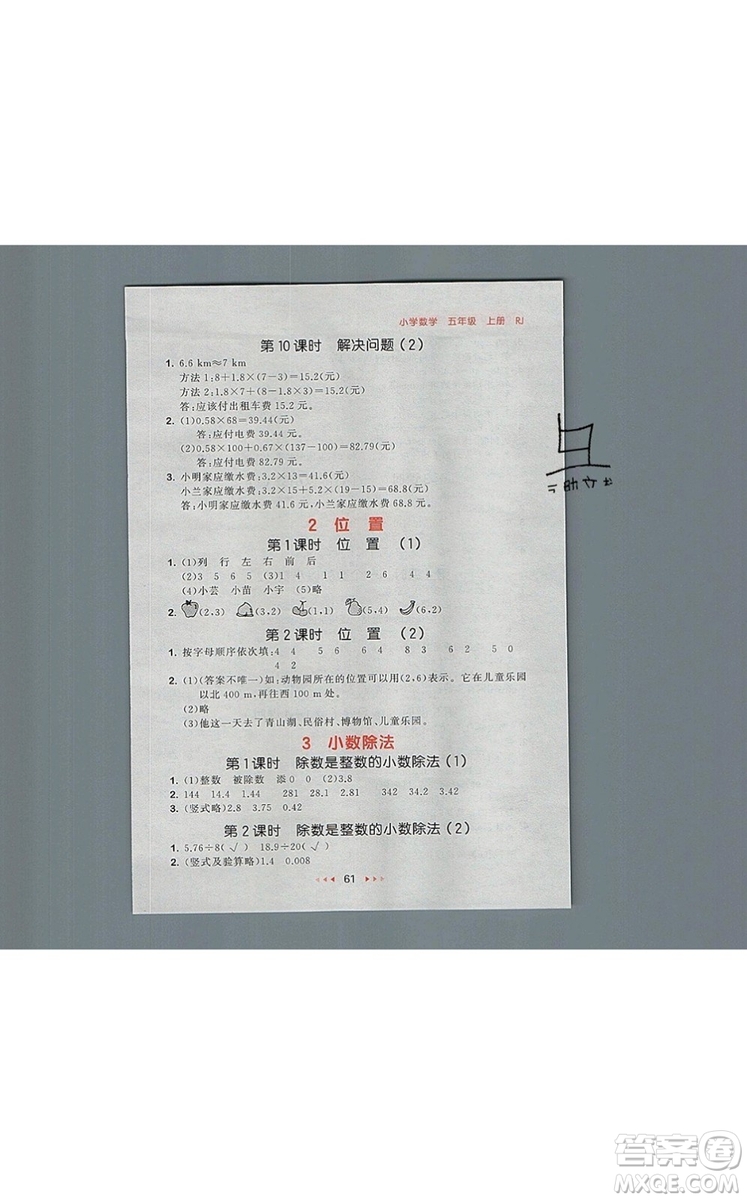 小学数学 五年级 上册 RJ
第10课时 解决问题(2)
1. 6.6 km≈7 km
方法1:8+1.8×(7−3)=15.2(元)
方法2:1.8×7+(8−1.8×3)=15.2(元)
答:应该付出租车费15.2元。
2. (1)0.58×68=39.44(元)
答:应付电费39.44元。
(2)0.58×100+0.67×(137−100)=82.79(元)
答:应付电费82.79元。
3. 小明家应缴水费:3.2×13=41.6(元)
小兰家应缴水费:3.2×15+5.2×(19−15)=68.8(元)
答:小明家应缴水费41.6元,小兰家应缴水费68.8元。
2 位置
第1课时 位置 (1)
1. (1)列 行 左 右 前 后
(2)3 5 6 5 (3)1 4 1 1 2 6 4 4
(4)小芸 小苗 小宇 (5)略
2. (2,3) (3,2) (1,1) (5,4) (6,2)
第2课时 位置 (2)
1. 按字母顺序依次填:4 4 5 6 6 4 8 3 6 2 5 0
4 2
2. (1)(答案不唯一)如:动物园所在的位置可以用(2,6)表示。它在儿童乐园
以北400 m,再往西100 m处。
(2)略
(3)他这一天去了青山湖、民俗村、博物馆、儿童乐园。
3 小数除法
第1课时 除数是整数的小数除法(1)
1. (1)整数 被除数 添0 0 (2)3.8
2. 144 14.4 1.44 281 28.1 2.81 342 34.2 3.42
3. (竖式略)2.8 3.75 0.42
第2课时 除数是整数的小数除法(2)
1. 5.76÷8(√) 18.9÷20(√)
2. (竖式及验算略)1.4 0.008
61
答案圈
MXQE.COM